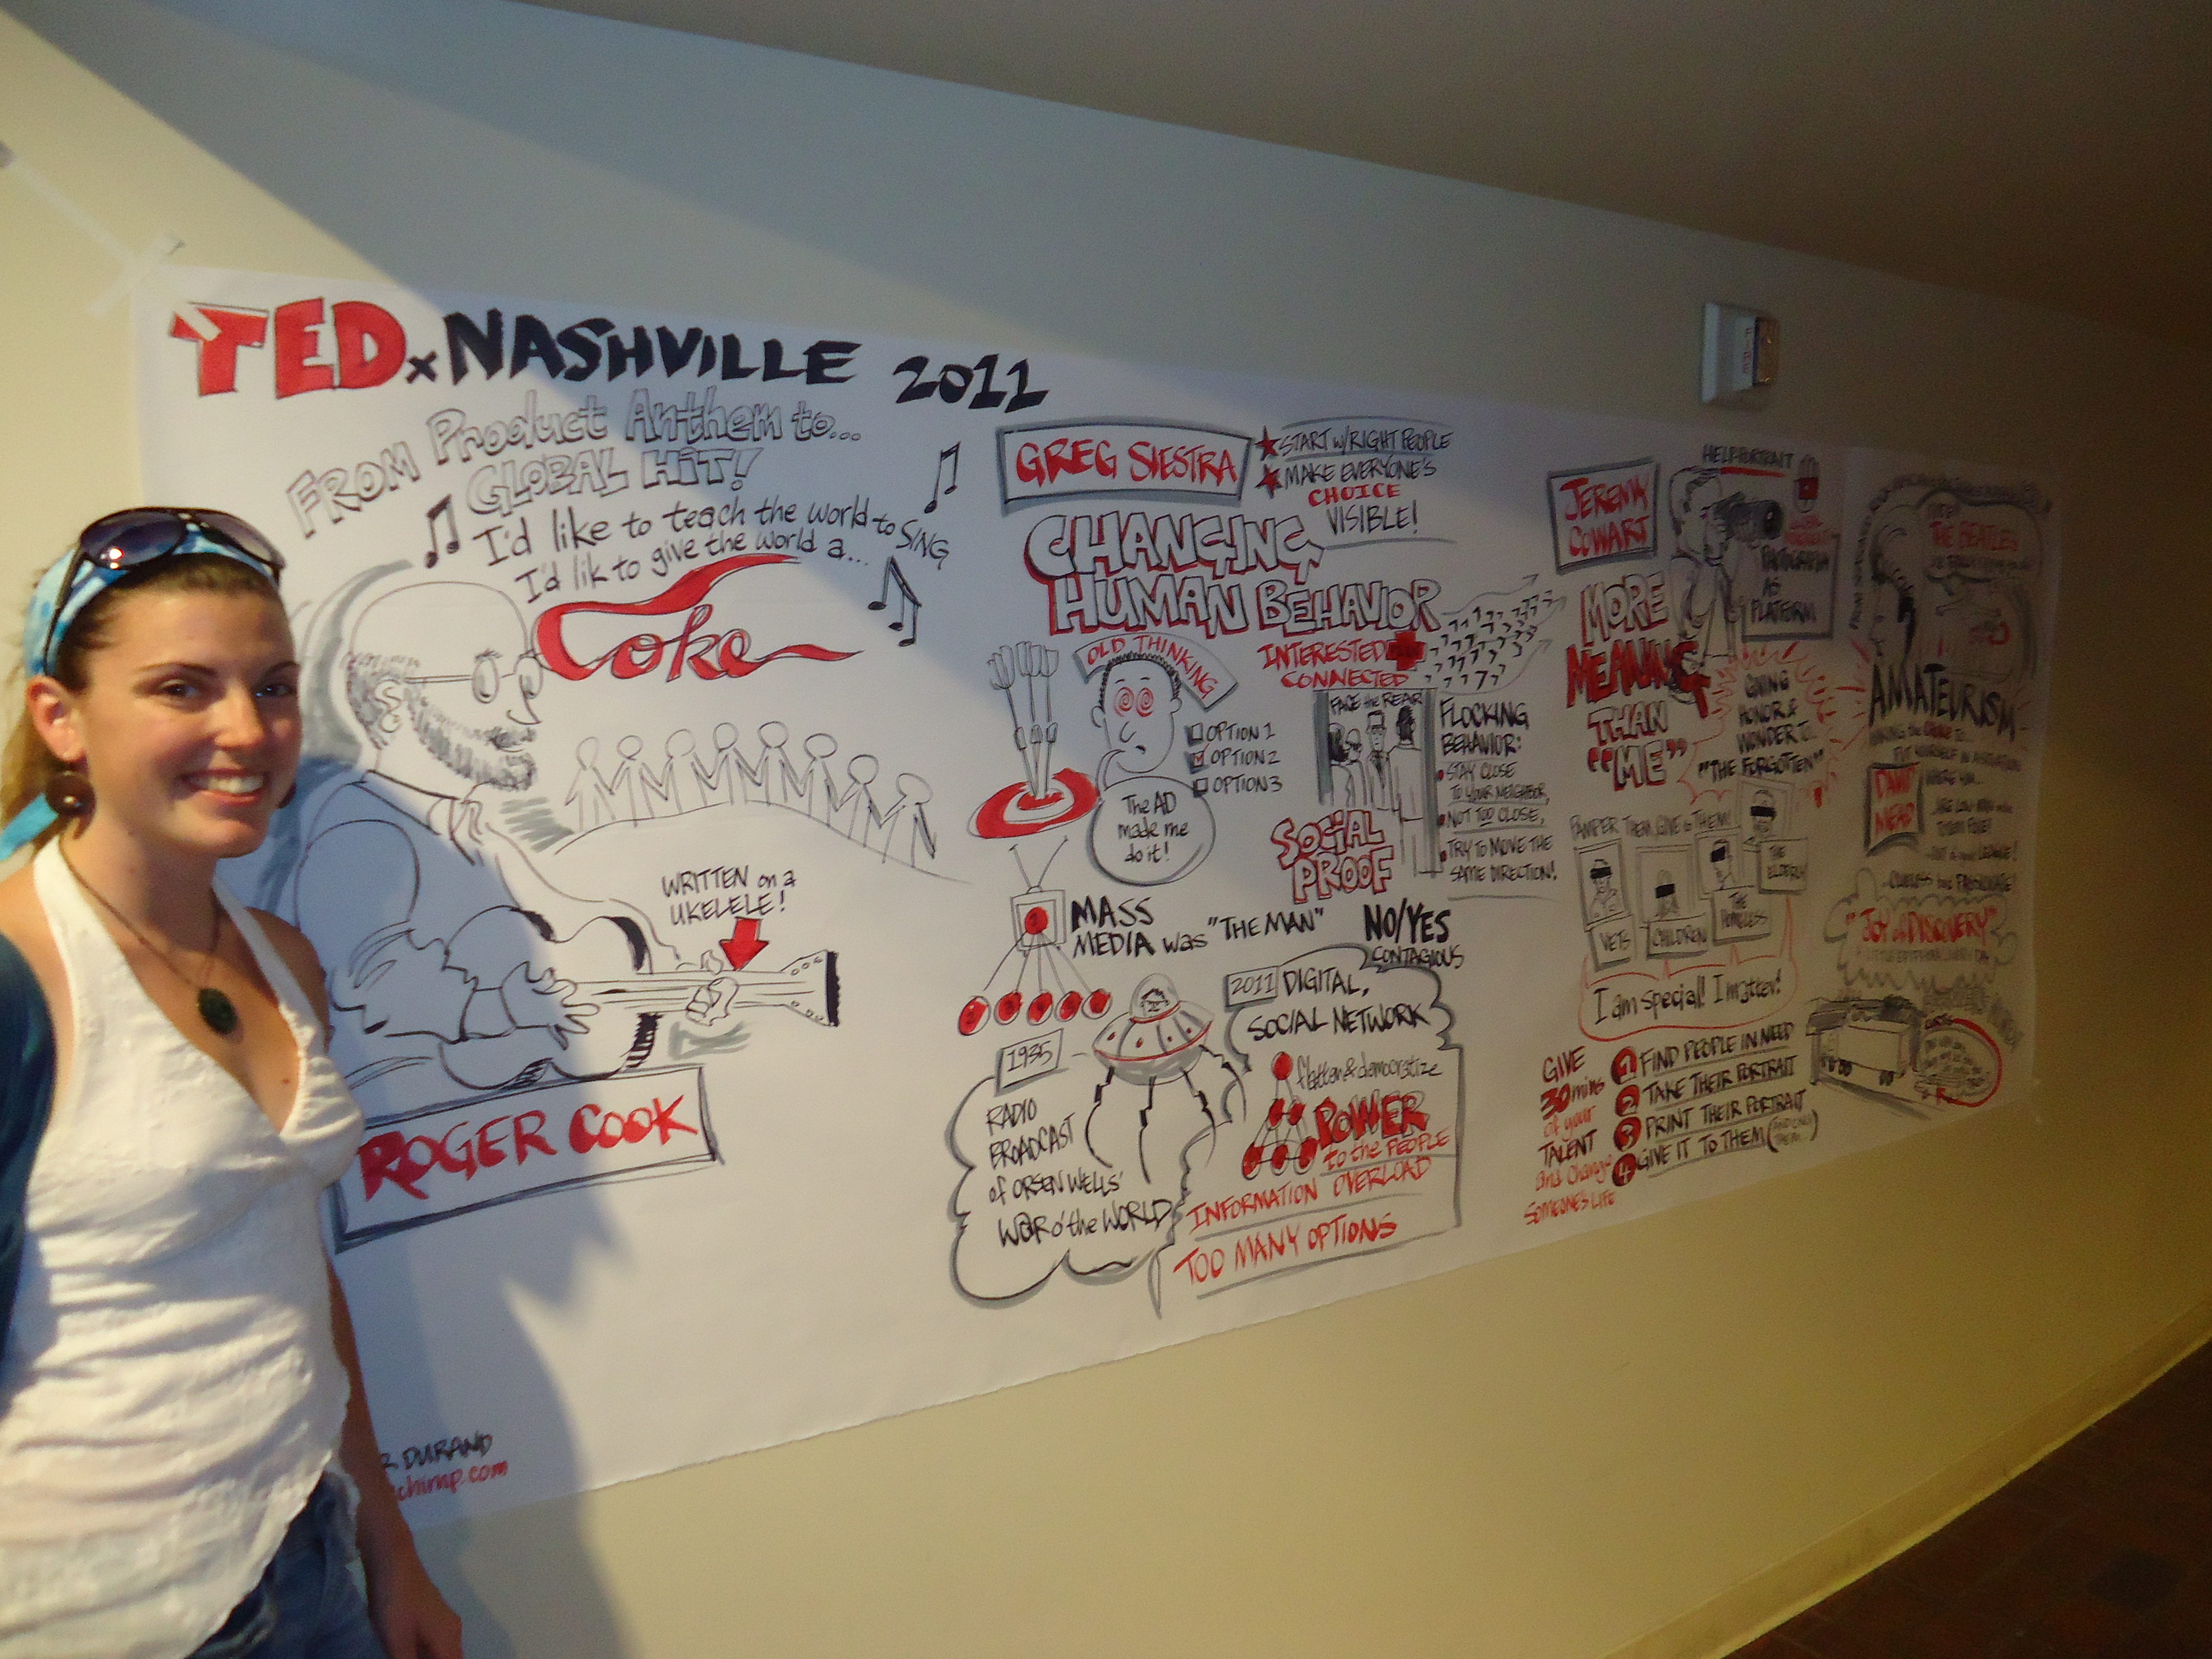 TEDxNASHVILLE 2011
FROM Product Anthem to...
GLOBAL HIT!
I'd like to teach the world to SING
I'd lik to give the world a...
Coke
WRITTEN on a
UKELELE!
ROGER COOK
R DURAND
chimp.com
GREG SIESTRA
START w/RIGHT PEOPLE
MAKE EVERYONE'S
CHOICE
VISIBLE!
CHANGING
HUMAN BEHAVIOR
OLD THINKING
OPTION 1
OPTION 2
OPTION 3
The AD
made me
do it!
INTERESTED
CONNECTED
FACE the REAR
SOCIAL
PROOF
FLOCKING
BEHAVIOR:
STAY CLOSE
TO YOUR NEIGHBOR,
NOT TOO CLOSE,
TRY TO MOVE THE
SAME DIRECTION!
MASS
MEDIA was "THE MAN"
NO/YES
CONTAGIOUS
1935
RADIO
BROADCAST
of ORSEN WELLS'
W@R o' the WORLD
2011 DIGITAL,
SOCIAL NETWORK
flatten & democratize
POWER
to the PEOPLE
INFORMATION OVERLOAD
TOO MANY OPTIONS
JEREMY
COWART
HELP-PORTRAIT
AS
PLATFORM
MORE
MEANING
THAN
"ME"
GIVING
HONOR &
WONDER TO...
"THE FORGOTTEN"
PAMPER THEM, GIVE to THEM!
VETS
CHILDREN
THE
HOMELESS
THE
ELDERLY
I am special! I matter!
GIVE
30 mins
of your
TALENT
and Change
SOMEONE'S LIFE
1 FIND PEOPLE IN NEED
2 TAKE THEIR PORTRAIT
3 PRINT THEIR PORTRAIT
4 GIVE IT TO THEM
THE BEATLES
AMATEURISM
DAVID
MEAD
"JOY of DISCOVERY"